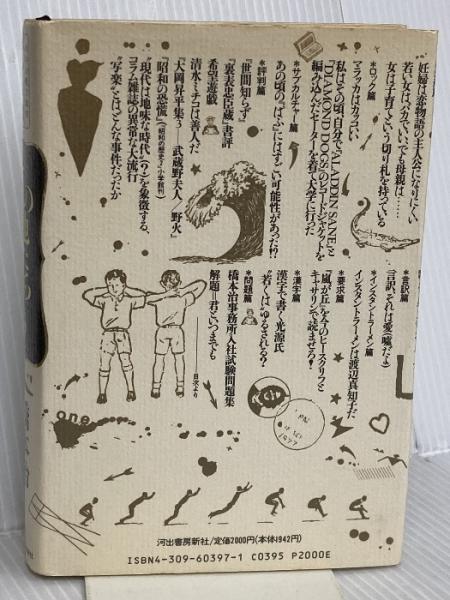 妊婦は恋物語の主人公になりにくい
若い女はバカでいい?でも母親は……
女は子育てという切り札を持っている
＊ロック篇
ミラッカはカッコいい
私はその頃、自分で『ALADDIN SANE』と
『DIAMOND DOGS』のレコードジャケットを
編み込んだセーターを着て大学に行った
＊サブカルチャー篇
あの頃の『ぱふ』にはすごい可能性があった!?
＊評判篇
『世間知らず』
『裏表忠臣蔵』書評
希望遊戯
清水ミチコは善人だ
『大岡昇平集3 武蔵野夫人/野火』
『昭和の恐慌』(『昭和の歴史2』小学館刊)
“現代は地味な時代(?)を象徴する、
コラム雑誌の異常な大流行
“写楽”とはどんな事件だったか
＊言訳篇
言訳 それは愛(嘘だよ)
＊インスタントラーメン篇
インスタントラーメンは渡辺真知子だ
＊要求篇
『嵐が丘』を今のヒースクリフと
キャサリンで読ませろ!
＊漢字篇
漢字で書く光源氏
“若くは”ゆるされる?
＊問題篇
橋本治事務所入社試験問題集
解題=君といつまでも
目次より
one
1977
河出書房新社/定価2000円(本体1942円)
ISBN4-309-60397-1 C0395 P2000E